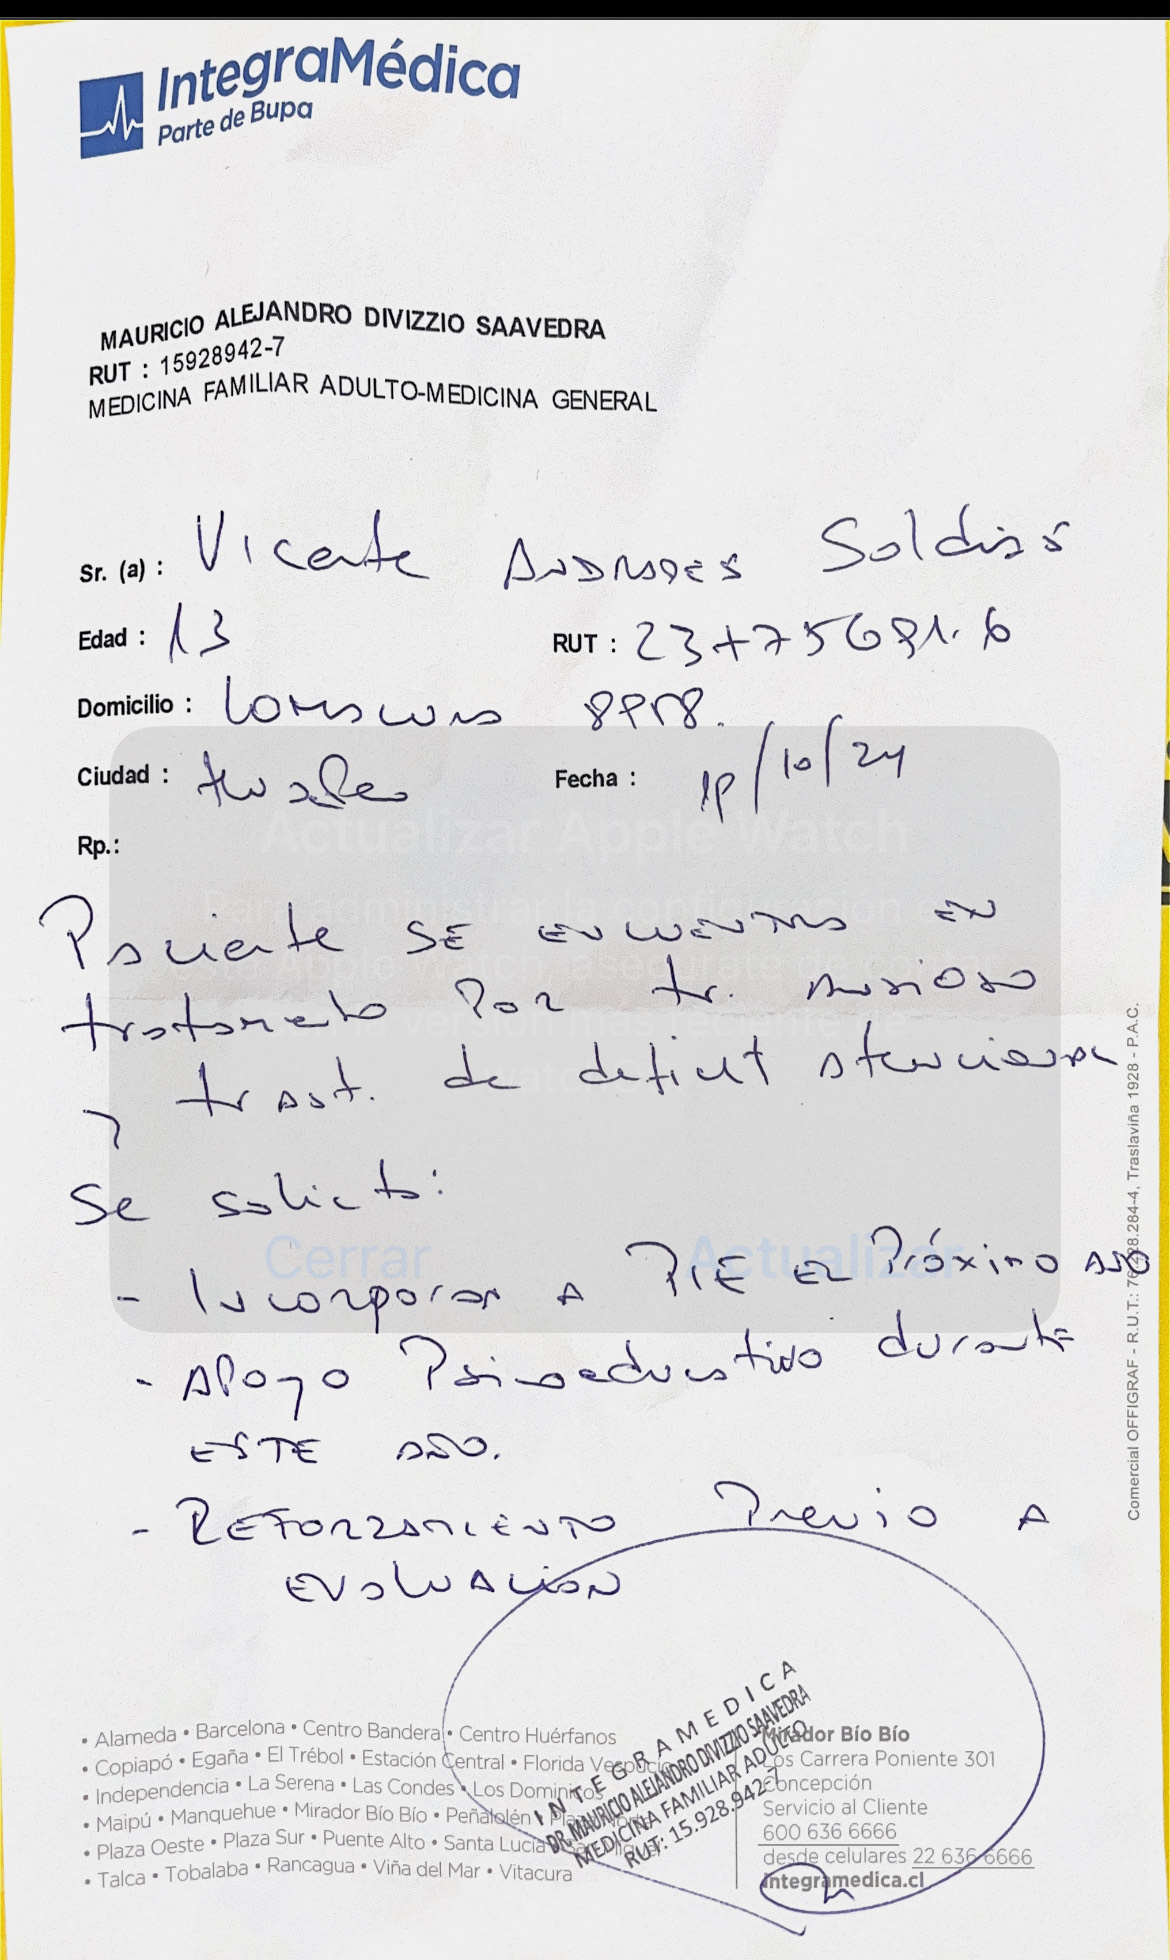 IntegraMédica
Parte de Bupa
MAURICIO ALEJANDRO DIVIZZIO SAAVEDRA
RUT : 15928942-7
MEDICINA FAMILIAR ADULTO-MEDICINA GENERAL
Sr. (a) : Vicente ANDRADES Soldias
Edad : 13 RUT :
Domicilio :
Ciudad : Fecha : /10/24
Rp.:
Actualizar Apple Watch
Paciente SE encuentra EN
tratamiento Por tr. Ansioso
y trast. de deficit atencional
Se solicita:
Cerrar Actualizar
- Incorporar A PIE el Próximo año
- Apoyo Psicoeducativo durante
ESTE año.
- REFORZAMIENTO Previo A
evaluación
Comercial OFFIGRAF - R.U.T.: 284-4, Traslaviña 1928 - P.A.C.
INTEGRAMEDICA
DR. MAURICIO ALEJANDRO DIVIZZIO SAAVEDRA
MEDICINA FAMILIAR ADULTO
RUT: 15.928.942-7
• Alameda • Barcelona • Centro Bandera • Centro Huérfanos
• Copiapó • Egaña • El Trébol • Estación Central • Florida
• Independencia • La Serena • Las Condes • Los Dominicos
• Maipú • Manquehue • Mirador Bío Bío • Peñalolén
• Plaza Oeste • Plaza Sur • Puente Alto • Santa Lucía
• Talca • Tobalaba • Rancagua • Viña del Mar • Vitacura
Mirador Bío Bío
Los Carrera Poniente 301
Concepción
Servicio al Cliente
600 636 6666
desde celulares 22 636 6666
integramedica.cl